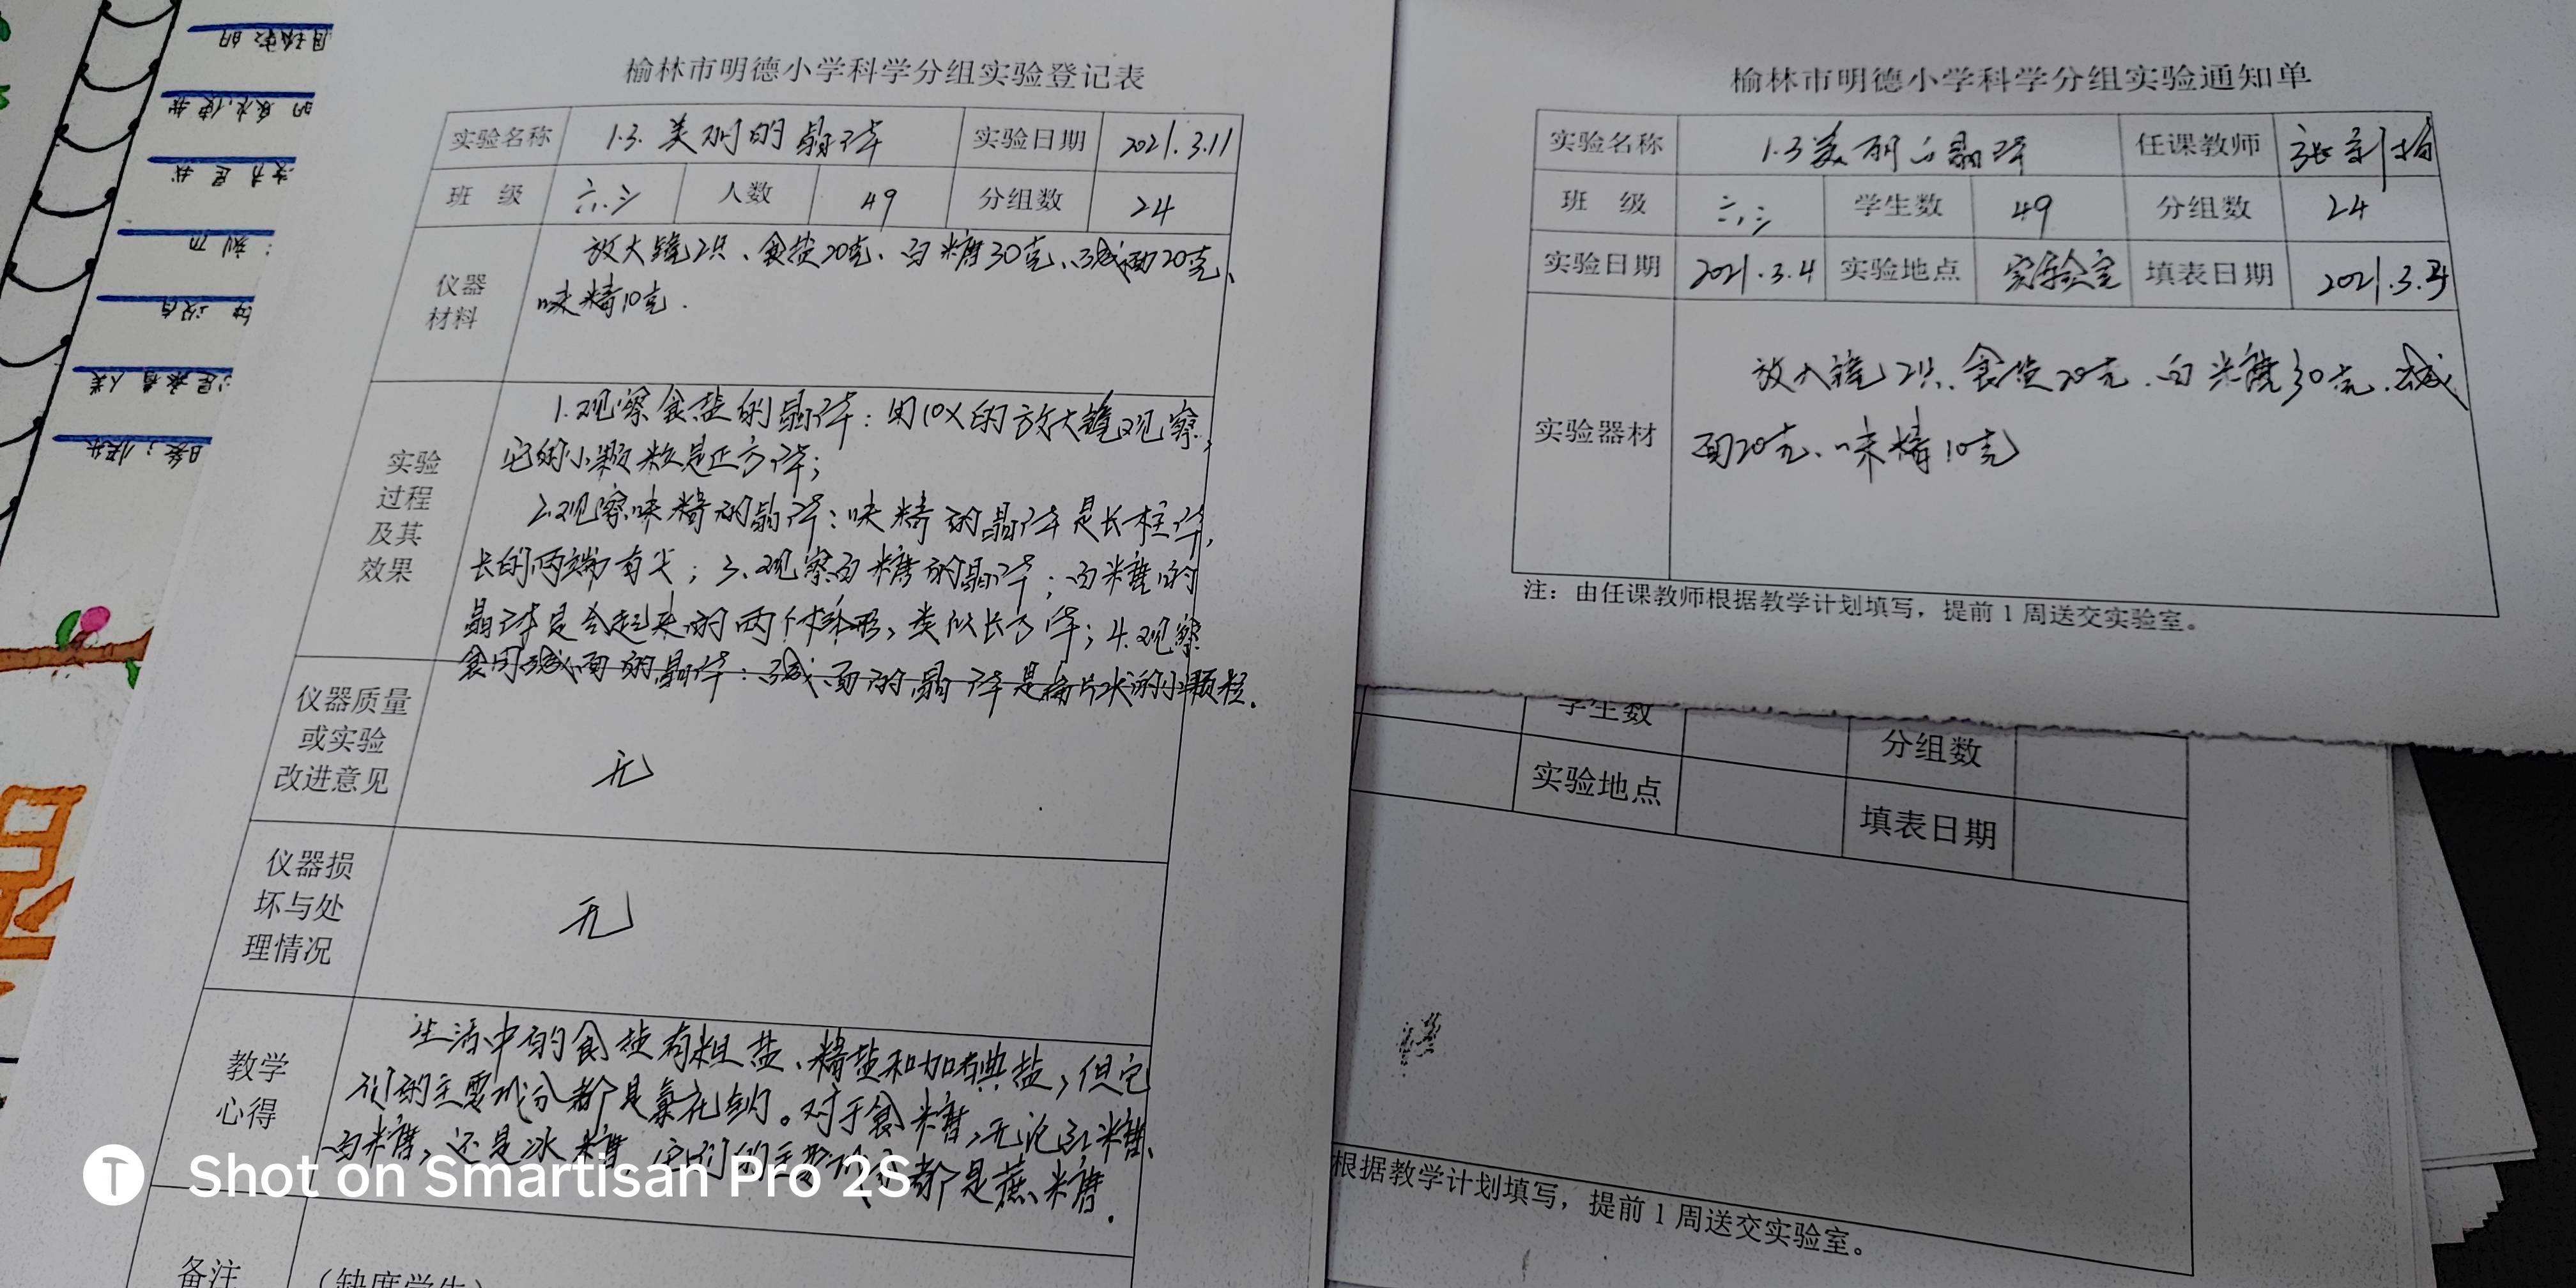 榆林市明德小学科学分组实验登记表
实验名称 1.3.美丽的晶体 实验日期 2021.3.11
班 级 六.三 人数 49 分组数 24
仪器材料
放大镜2只、食盐20克、白糖30克、碱面20克、
味精10克.
实验过程及其效果
1.观察食盐的晶体:用10X的放大镜观察,
它的小颗粒是正方体;
2.观察味精的晶体:味精的晶体是长柱体,
长的两端有尖;3.观察白糖的晶体:白糖的
晶体是合起来的两个梯形,类似长方体;4.观察
食用碱面的晶体:碱面的晶体是扁片状的小颗粒.
仪器质量或实验改进意见
无
仪器损坏与处理情况
无
教学心得
生活中的食盐有粗盐、精盐和加碘盐,但它
们的主要成分都是氯化钠。对于食糖,无论红糖、
白糖,还是冰糖 它们的主要成分都是蔗糖.
备注
榆林市明德小学科学分组实验通知单
实验名称 1.3美丽的晶体 任课教师 张
班 级 六.三 学生数 49 分组数 24
实验日期 2021.3.4 实验地点 实验室 填表日期 2021.3.
实验器材
放大镜2只、食盐20克、白糖30克、碱
面20克、味精10克
注:由任课教师根据教学计划填写,提前1周送交实验室。
学生数 分组数
实验地点 填表日期
根据教学计划填写,提前1周送交实验室。
Shot on Smartisan Pro 2S